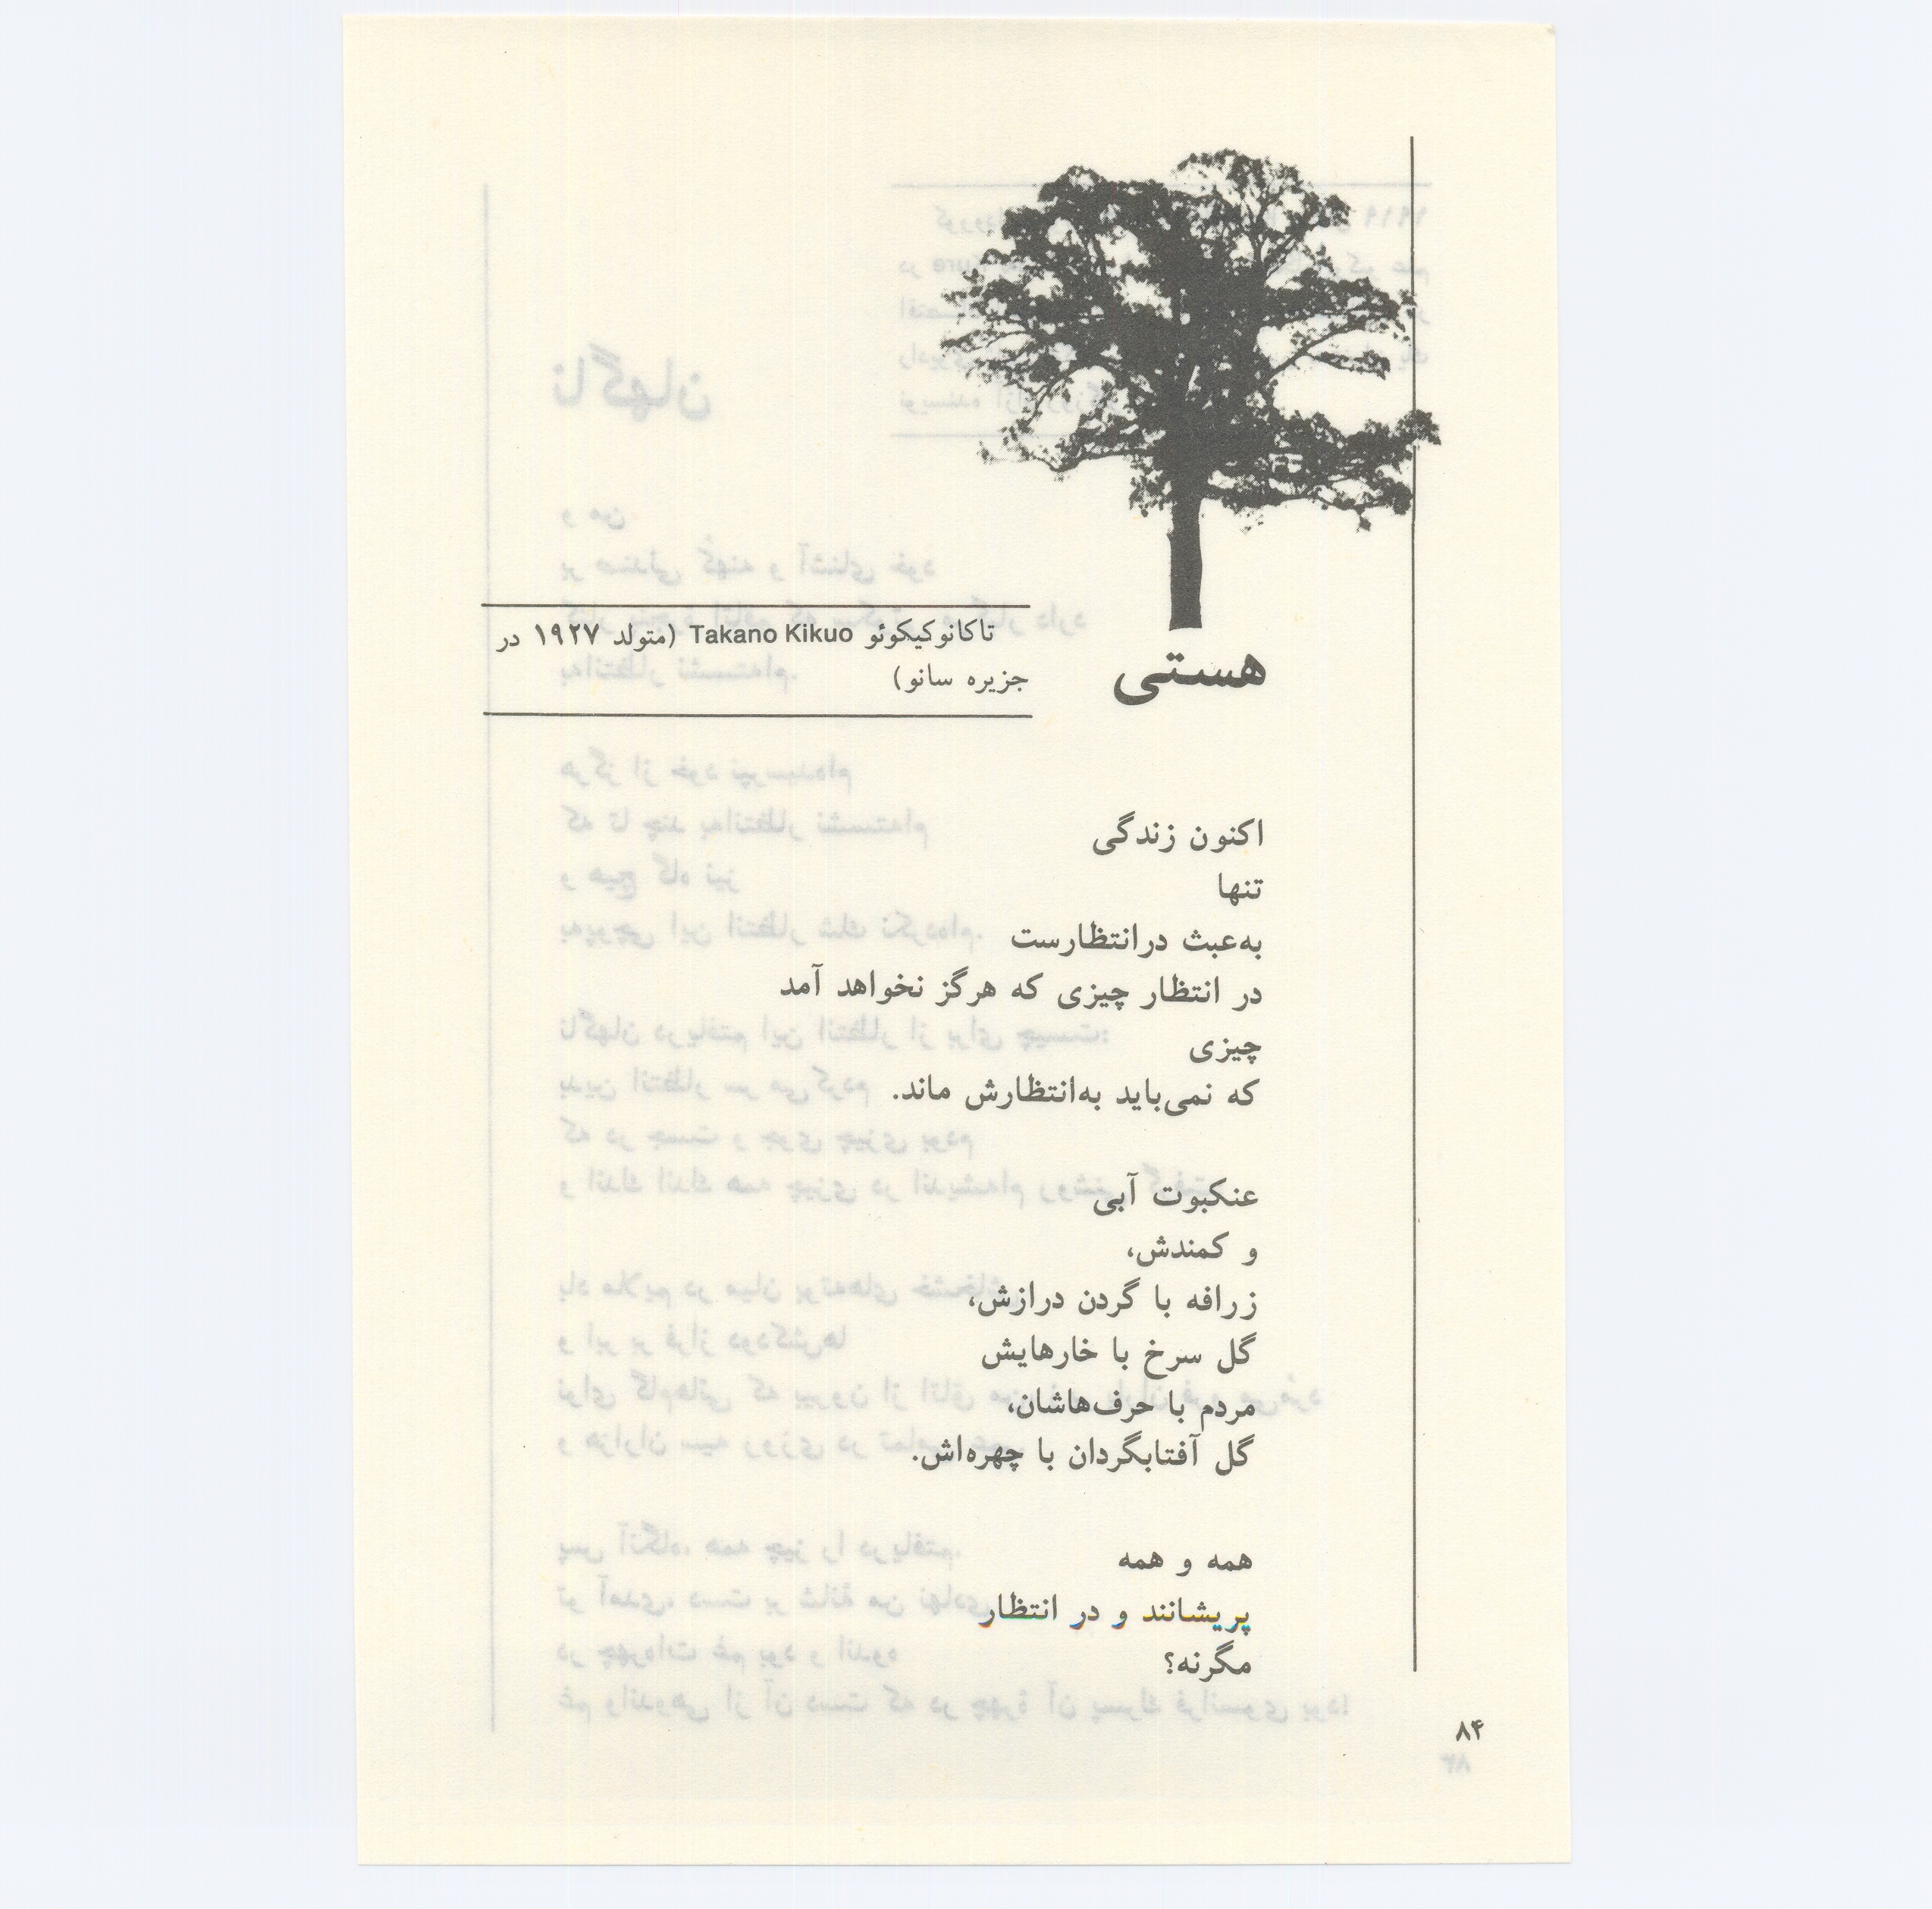 هستی
تاکانوکیکوئو Takano Kikuo (متولد ۱۹۲۷ در
جزیره سانو)
اکنون زندگی
تنها
به‌عبث درانتظارست
در انتظار چیزی که هرگز نخواهد آمد
چیزی
که نمی‌باید به‌انتظارش ماند.
عنکبوت آبی
و کمندش،
زرافه با گردن درازش،
گل سرخ با خارهایش
مردم با حرف‌هاشان،
گل آفتابگردان با چهره‌اش.
همه و همه
پریشانند و در انتظار
مگرنه؟
۸۴